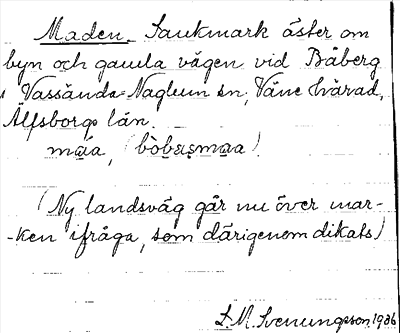 Maden. Sankmark öster om
byn och gamla vägen vid Båberg
i Vassända-Naglum sn, Väne härad,
Älfsborgs län.
ma̱a, (bòba̱ṣma̱a)
(Ny landsväg går nu över mar-
-ken ifråga, som därigenom dikats)
L. M. Svenungsson 1936